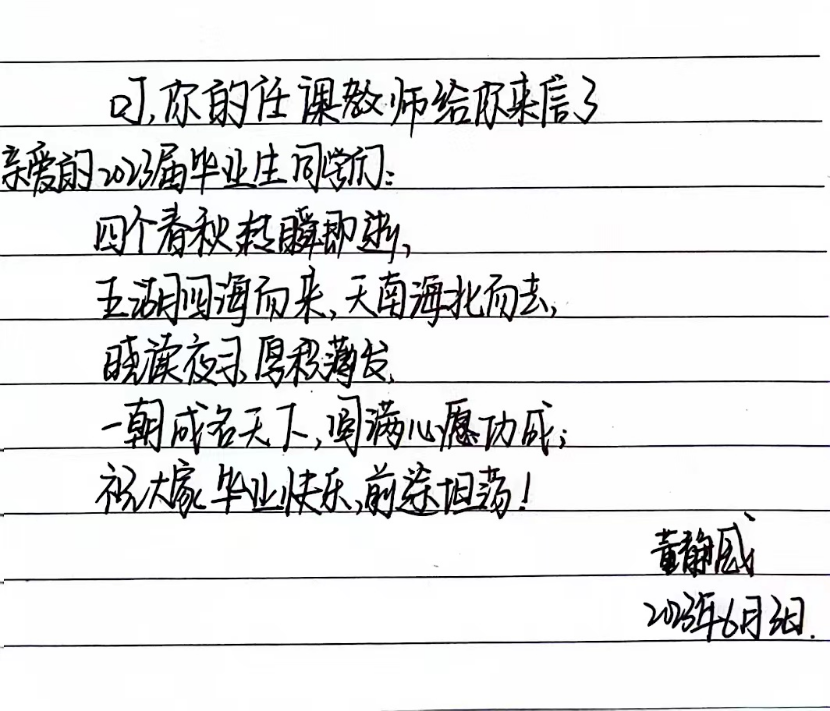 叮,你的任课教师给你来信了
亲爱的2023届毕业生同学们:
四个春秋转瞬即逝,
五湖四海而来,天南海北而去,
晓读夜习,厚积薄发,
一朝成名天下,圆满心愿功成;
祝大家毕业快乐,前途坦荡!
黄静
2023年6月3日.